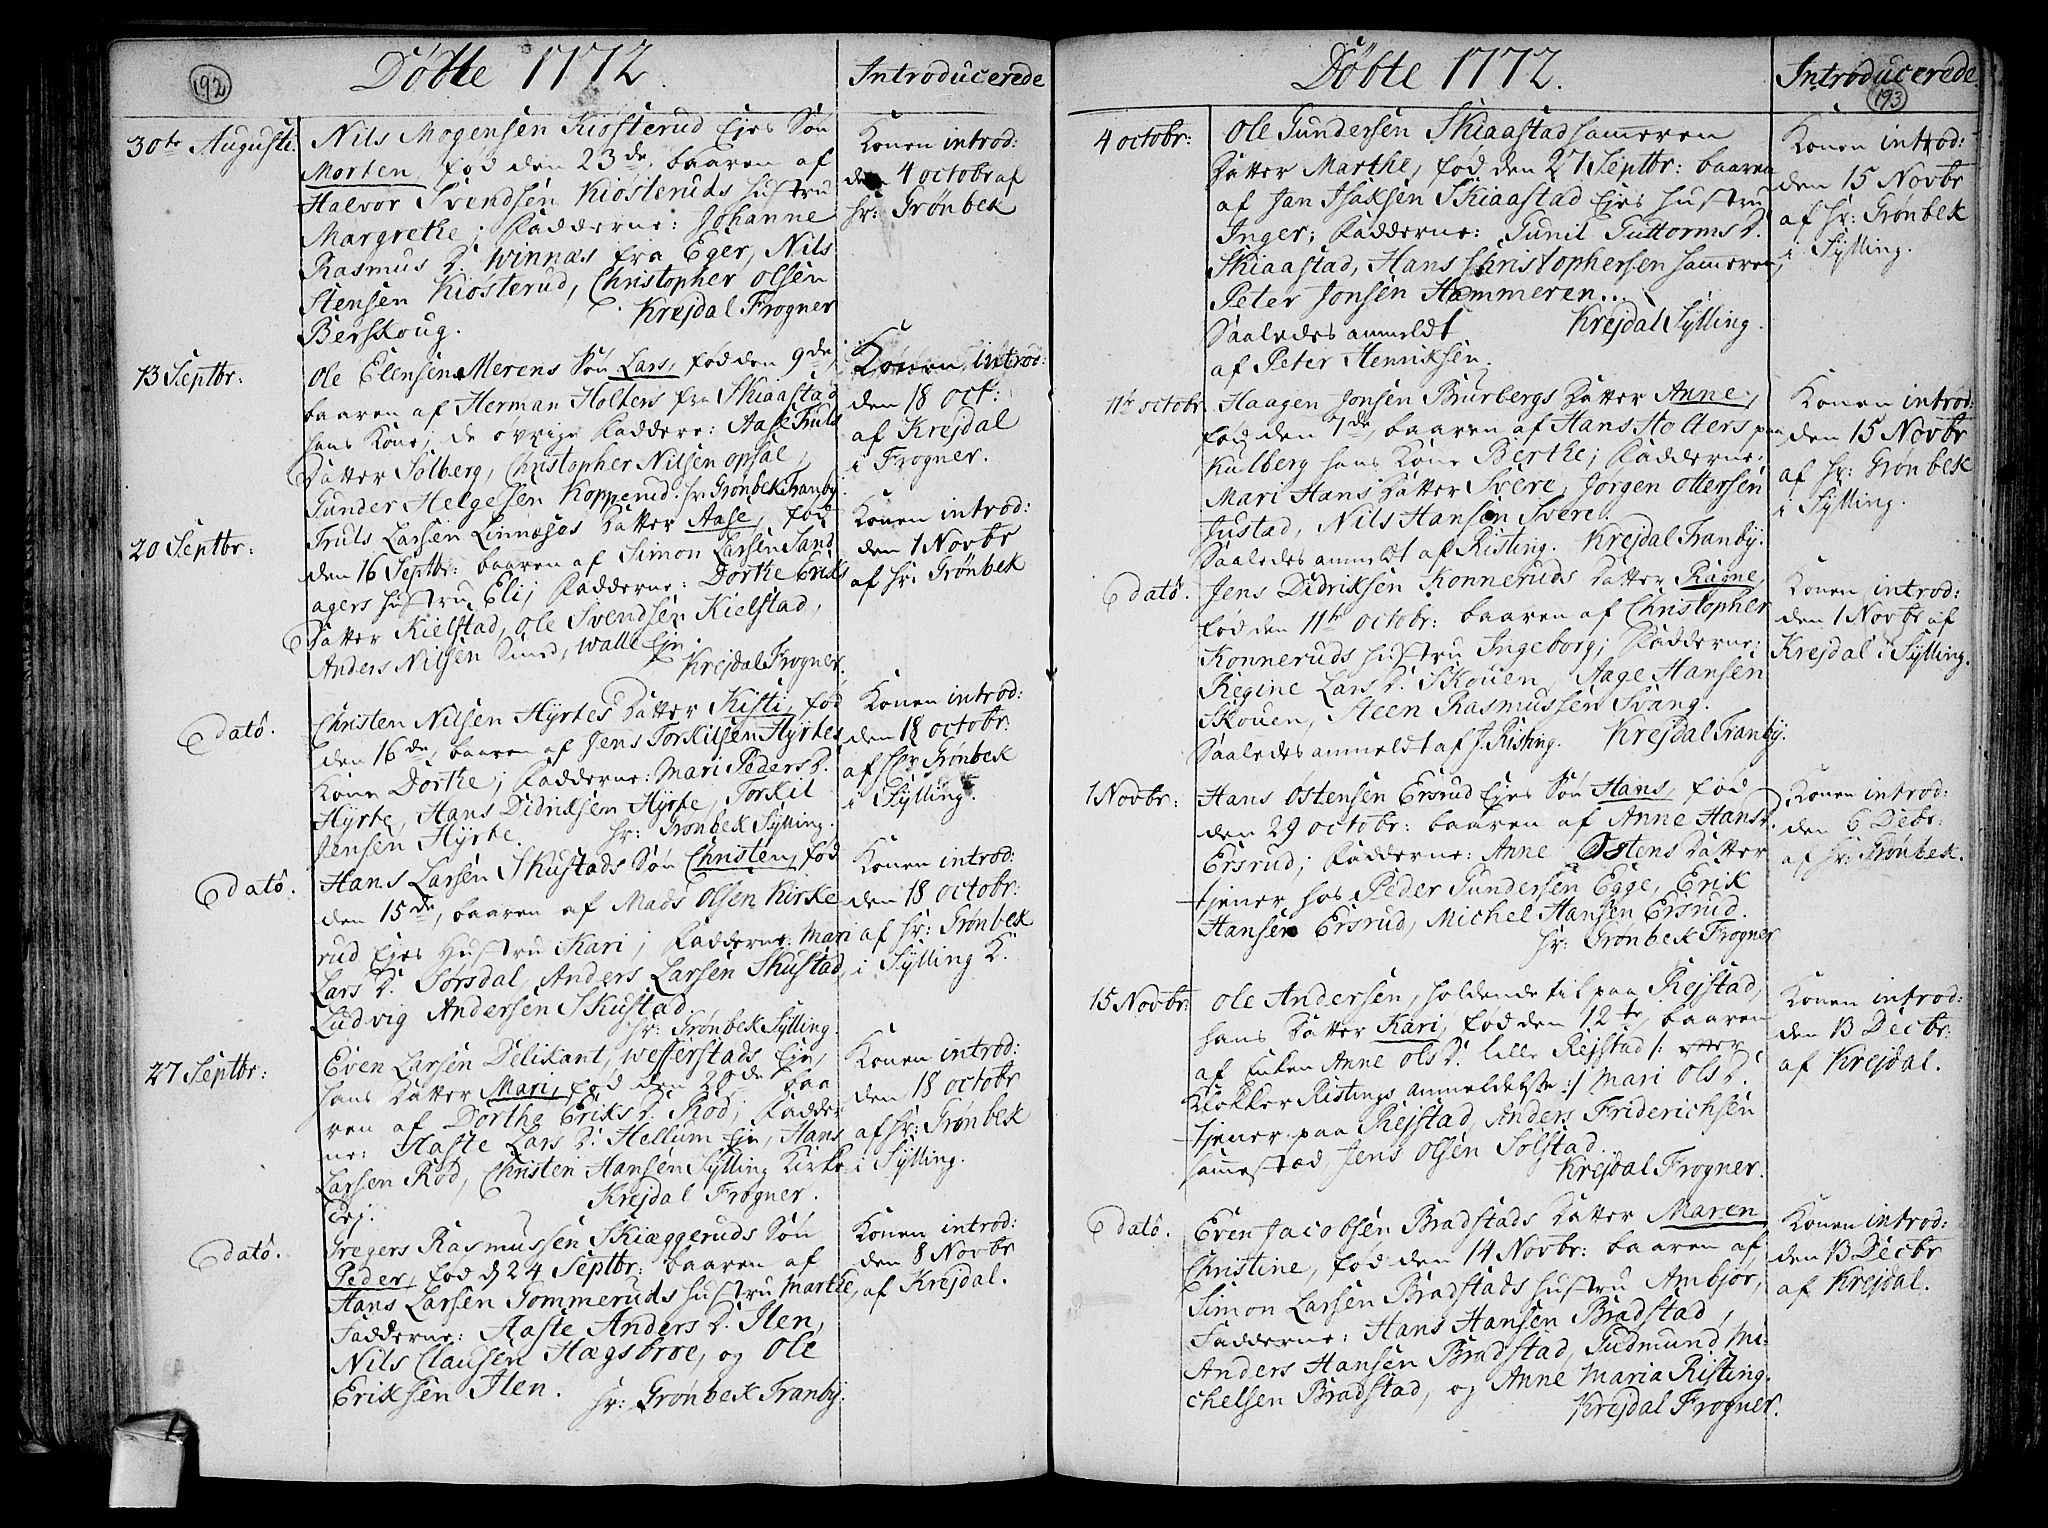 192
Döbte 1772.
Introducerede
30te Augusti.
Nils Mogensen Kiosterud Ejes Sön
Morten, fød den 23de, baaren af
Halvor Svendsen Kiosteruds Hustru
Margrethe; Fadderne: Johanne
Rasmus D. Winnæs fra Eger, Nils
Stensen Kiosterud, Christopher Olsen
Berskoug. Krejdal Frogner
Konen introd:
den 4 octobr af
Hr: Grønbek
13 Septbr:
Ole Elensen Merens Sön Lars, fød den 9de,
baaren af Herman Holters fra Skiaastad
hans Kone; de øvrige Faddere: Aase Truls
Datter Solberg, Christopher Nilsen opsal,
Gunder Helgesen Kopperud. Hr Grønbek Tranby
Konen introd:
den 18 oct:
af Krejdal
i Frogner.
20 Septbr:
Truls Larsen Linnæses Datter Aase, fød
den 16 Septbr: baaren af Simon Larsen Sand
agers Hustru Eli; Fadderne: Dorthe Eriks
Datter Kielstad, Ole Svendsen Kielstad,
Anders Nilsen Smed, Walle Eje
Krejdal Frogner.
Konen introd:
den 1 Novbr
af Hr: Grønbek
dato.
Christen Nilsen Hyrtes Datter Kisti, fød
den 16de, baaren af Jens Torkilsen Hyrtes
Kone Dorthe; Fadderne: Mari Peders D.
Hyrte, Hans Didriksen Hyrte, Torkil
Jensen Hyrte. Hr: Grønbek Sylling.
Konen introd:
den 18 octobr.
af Hr Grønbek
i Sylling.
dato.
Hans Larsen Skustads Sön Christen, fød
den 15de, baaren af Mads Olsen Kirke
rud Ejes Hustru Kari; Fadderne: Mari
Lars D. Sørsdal, Anders Larsen Skustad,
Ludvig Andersen Skustad
Hr: Grönbek Sylling.
Konen introd:
den 18 octobr:
af Hr: Grønbek
i Sylling K.
27 Septbr:
Even Larsen Delikant, Wefferstads Eje,
hans Datter Mari, fød den 20de baa
ren af Dorthe Eriks D. Rod, Fadder
ne: Haste Lars D. Hellum Eje, Hans
Larsen Rod, Christen Hansen Sylling Kirke
Eej. Krejdal Frogner.
Konen introd:
den 18 octobr
af Hr: Grønbek
i Sylling.
dato.
Gregers Rasmussen Skiæggeruds Sön
Peder, fød d 24 Septbr: baaren af
Hans Larsen Gommeruds Hustru Marthe,
Fadderne: Aaste Anders D. Ilen,
Nils Clausen Hægsbroe, og Ole
Eriksen Ilen. Hr: Grønbek Tranby.
Konen introd:
den 8 Novbr
af Krejdal.
193
Döbte 1772.
Introducerede
4 octobr:
Ole Gundersen Skiaastad hammeren
Datter Marthe, fød den 27 Septbr: baaren
af Jan Isaksen Skiaastad Ejes Hustru
Inger; Fadderne: Gunil Guttorms D.
Skiaastad, Hans Christophersen hammeren,
Peter Jonsen Hammeren...
Saaledes anmeldt Krejdal Sylling.
af Peter Henriksen.
Konen introd:
den 15 Novbr
af Hr: Grønbek
i Sylling.
11te octobr.
Haagen Jonsen Brurbergs Datter Anne,
fød den 7de, baaren af Hans Holters paa
Kulberg hans Kone Berthe; Fadderne:
Mari Hans Datter Svere, Jörgen Ottersen
Justad, Nils Hansen Svere.
Saaledes anmeldt af Risting. Krejdal Tranby.
Konen introd:
den 15 Novbr
af Hr: Grønbek
i Sylling.
dato.
Jens Didriksen Konneruds Datter Ragne,
fød den 11te octobr: baaren af Christopher
Konneruds Hustru Ingeborg; Fadderne:
Regine Lars D. Skouen, Aage Hansen
Skouen, Steen Rasmussen Svang.
Saaledes anmeldt af J. Risting. Krejdal Tranby.
Konen introd:
den 1 Novbr af
Krejdal i Sylling.
1 Novbr:
Hans Østensen Ersrud Ejes Sön Hans, fød
den 29 octobr: baaren af Anne Hans D.
Ersrud; Fadderne: Anne Østens Datter
tjener hos Peder Gundersen Egge, Erik
Hansen Ersrud, Michel Hansen Ersrud.
Hr: Grønbek Frogner
Konen introd:
den 6 Debr:
af Hr: Grønbek.
15 Novbr:
Ole Andersen, holdende til paa Rejstad,
hans Datter Kari, fød den 12te, baaren
af Enken Anne Ols D. lille Rejstad /:
Klokker Ristings anmeldelse :/ Mari Ols D.
tjener paa Rejstad, Anders Friderichsen
sammestad Jens Olsen Solstad.
Krejdal Frogner.
Konen introd:
den 13 Decbr:
af Krejdal.
dato.
Even Jacobsen Bradstads Datter Maren
Christine, fød den 14 Novbr: baaren af
Simon Larsen Bradstads Hustru Ambjør,
Fadderne: Hans Hansen Bradstad,
Anders Hansen Bradstad, Gudmund Mi-
chelsen Bradstad, og Anne Maria Risting.
Krejdal Frogner.
Konen introd:
den 13 Decbr
af Krejdal.